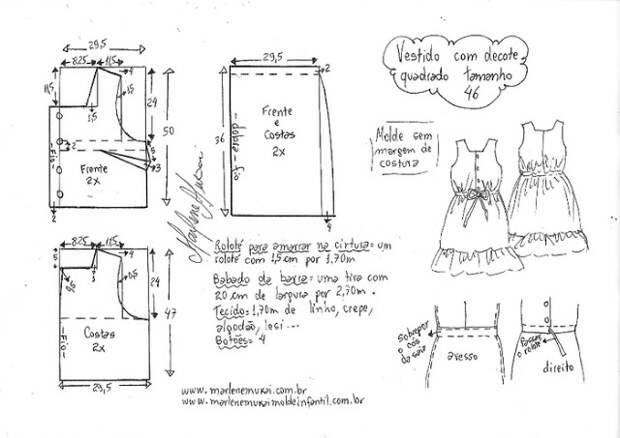 Vestido com decote
quadrado tamanho
46
Molde sem
margem de
costura
29,5
8,25
11,5
4
11,5
1,5
1,5
24
50
5
3
2
Fio
Frente
2x
2
29,5
2
96
dobra - fio
Frente
e
Costas
2x
9
8,25
11,5
4
5
24
47
Fio
Costas
2x
29,5
Marlene Mukai
Rolotê para amarrar na cintura = um
rolotê com 1,5 cm por 1,70m
Babado da barra = uma tira com
20 cm de largura por 2,70m.
Tecido: 1,70m de linho, crepe,
algodão, lesi...
Botões = 4
sobrepor
o cós
da saia
avesso
Passar
o rolotê
direito
www.marlenemukai.com.br
www.marlenemukaimoldeinfantil.com.br